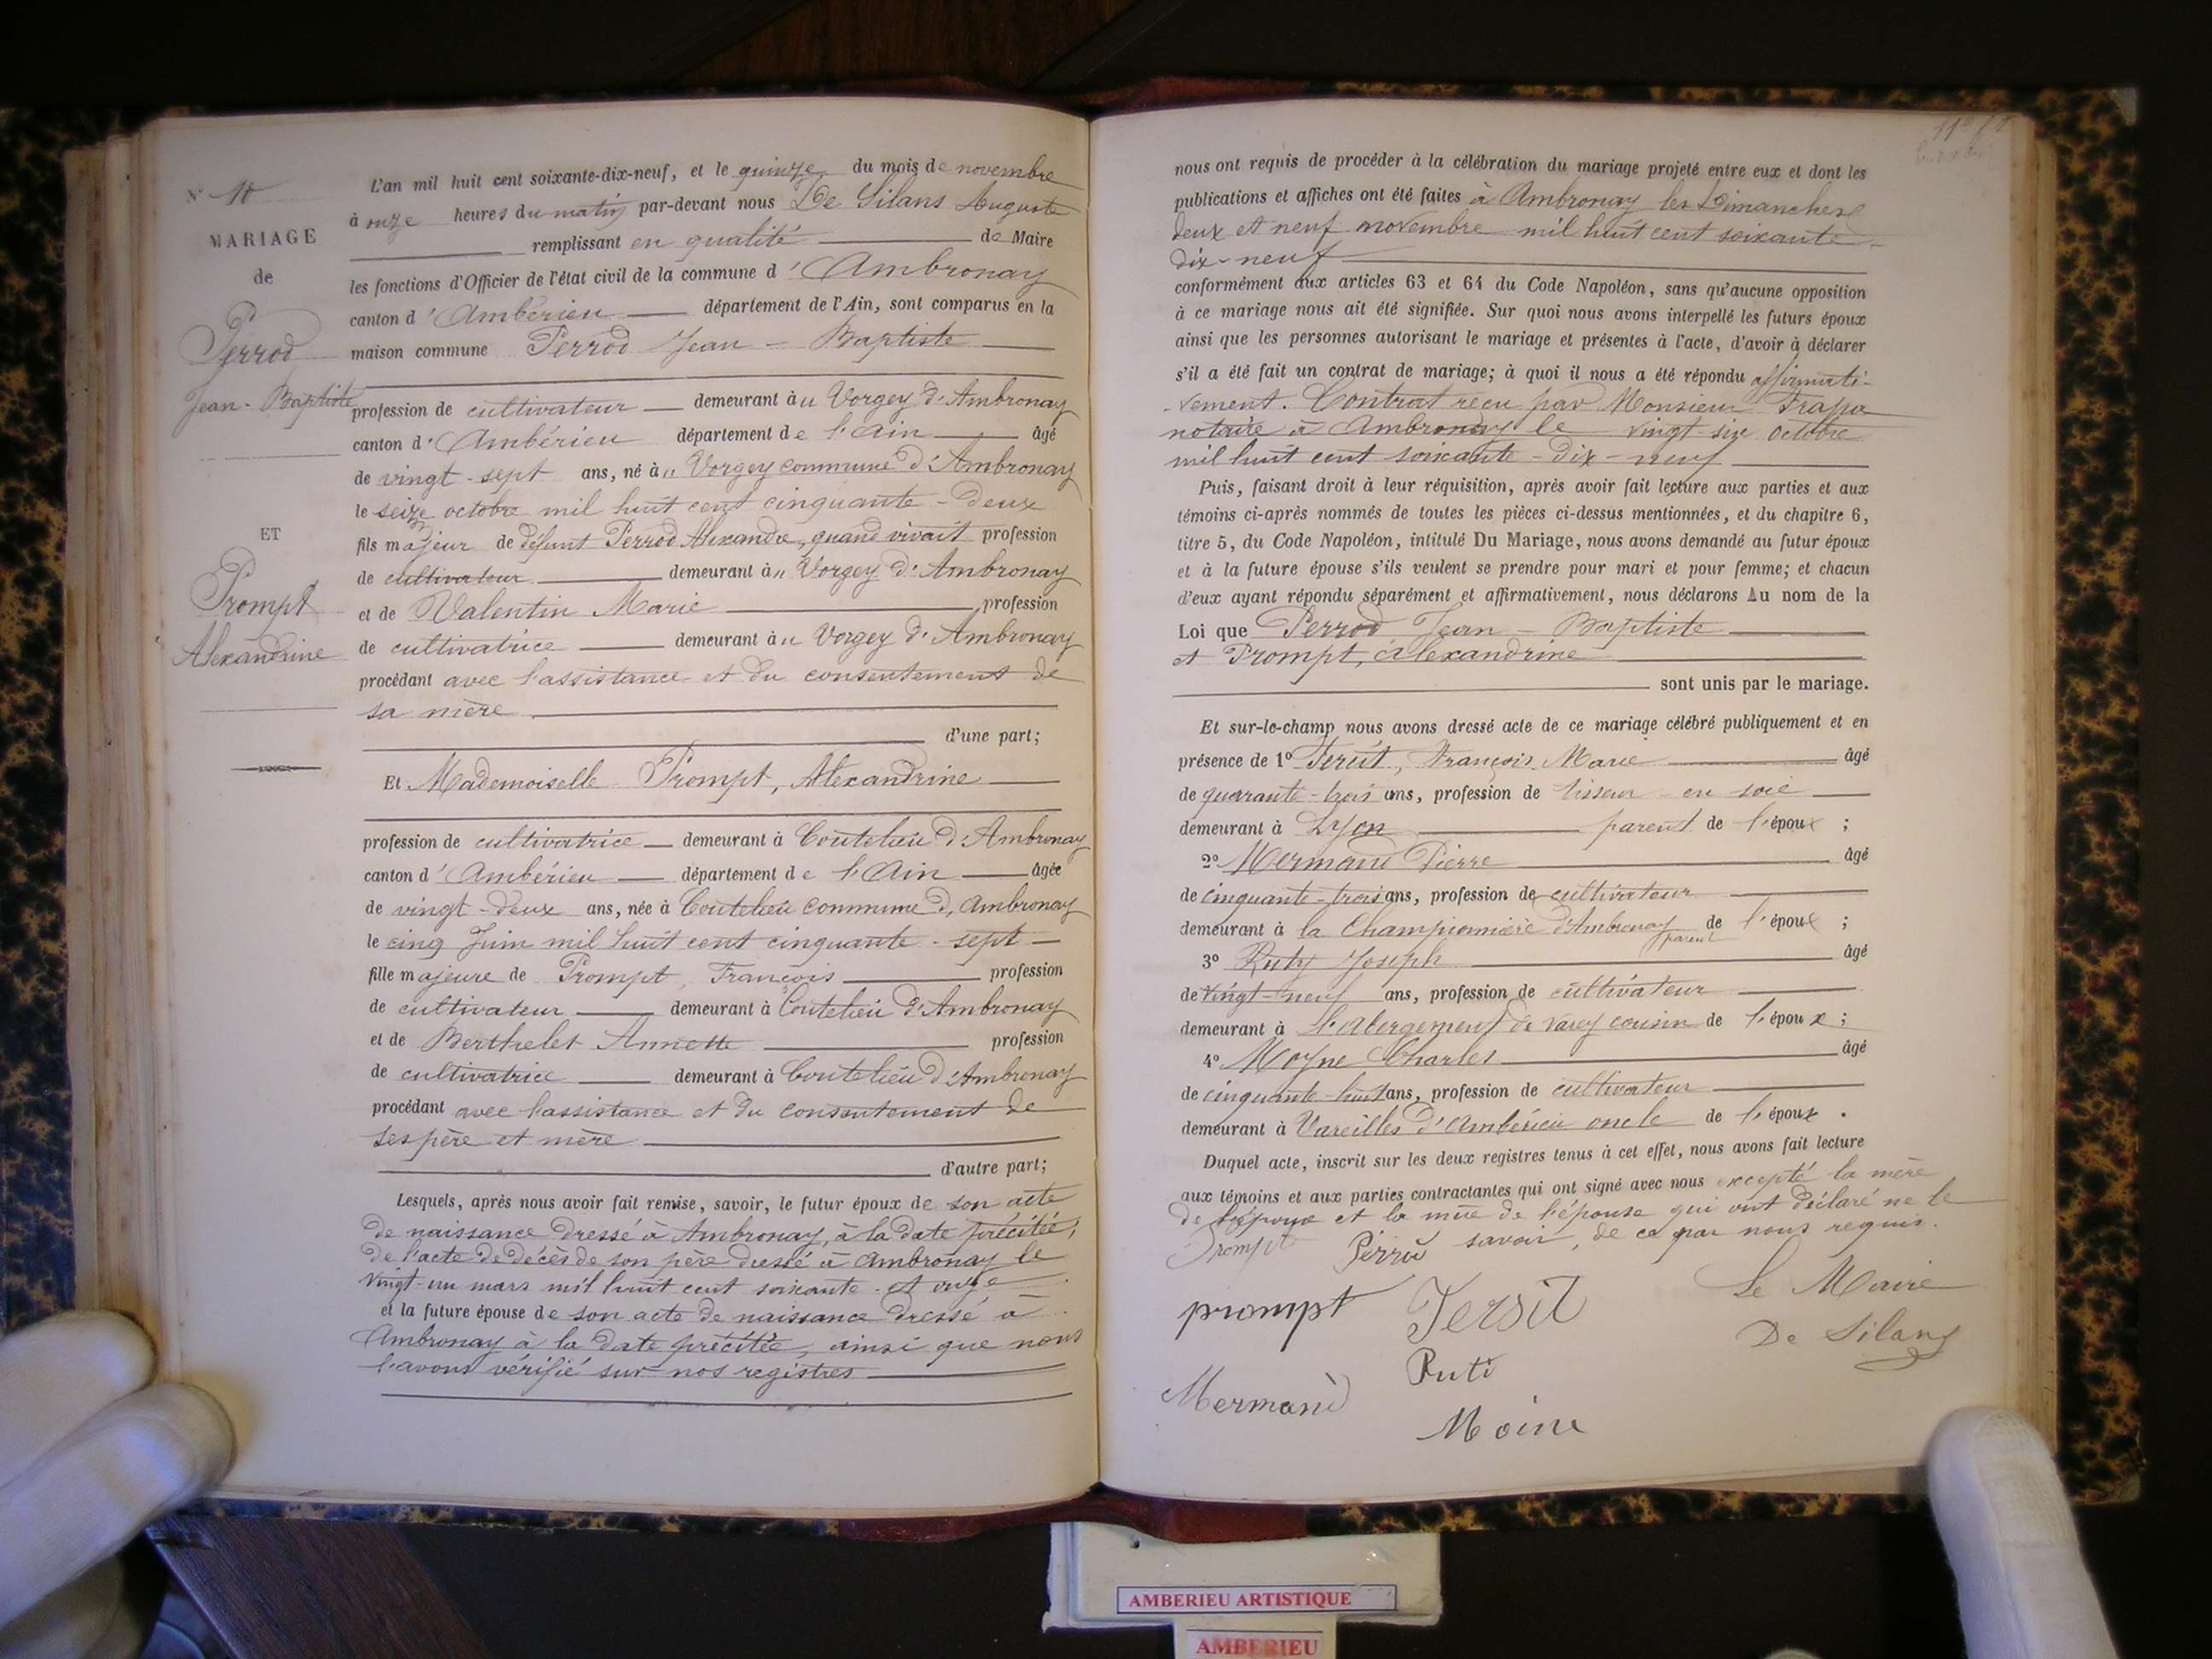 N° 18
MARIAGE
de
Perrod
Jean-Baptiste
ET
Prompt
Alexandrine
L'an mil huit cent soixante-dix-neuf, et le quinze du mois de novembre
à onze heures du matin par-devant nous De Silans Auguste
remplissant en qualité de Maire
les fonctions d'Officier de l'état civil de la commune d'Ambronay
canton d'Ambérieu département de l'Ain, sont comparus en la
maison commune Perrod Jean-Baptiste
profession de cultivateur demeurant au Vorgey d'Ambronay
canton d'Ambérieu département de l'Ain âgé
de vingt-sept ans, né au Vorgey commune d'Ambronay
le seize octobre mil huit cent cinquante-deux
fils majeur de défunt Perrod Alexandre, quand vivait profession
de cultivateur demeurant au Vorgey d'Ambronay
et de Valentin Marie profession
de cultivatrice demeurant au Vorgey d'Ambronay
procédant avec l'assistance et du consentement de
sa mère
d'une part;
Et Mademoiselle Prompt, Alexandrine
profession de cultivatrice demeurant à Coutelieu d'Ambronay
canton d'Ambérieu département de l'Ain âgée
de vingt-deux ans, née à Coutelieu commune d'Ambronay
le cinq Juin mil huit cent cinquante-sept
fille majeure de Prompt, François profession
de cultivateur demeurant à Coutelieu d'Ambronay
et de Berthelet Annette profession
de cultivatrice demeurant à Coutelieu d'Ambronay
procédant avec l'assistance et du consentement de
ses père et mère
d'autre part;
Lesquels, après nous avoir fait remise, savoir, le futur époux de son acte
de naissance dressé à Ambronay, à la date précitée,
de l'acte de décès de son père dressé à Ambronay le
vingt-un mars mil huit cent soixante-et onze
et la future épouse de son acte de naissance dressé à
Ambronay à la date précitée, ainsi que nous
l'avons vérifié sur nos registres
nous ont requis de procéder à la célébration du mariage projeté entre eux et dont les
publications et affiches ont été faites à Ambronay les Dimanches
deux et neuf novembre mil huit cent soixante-
dix-neuf
conformément aux articles 63 et 64 du Code Napoléon, sans qu'aucune opposition
à ce mariage nous ait été signifiée. Sur quoi nous avons interpellé les futurs époux
ainsi que les personnes autorisant le mariage et présentes à l'acte, d'avoir à déclarer
s'il a été fait un contrat de mariage; à quoi il nous a été répondu affirmati-
-vement. Contrat reçu par Monsieur
notaire à Ambronay le vingt-six octobre
mil huit cent soixante-dix-neuf
Puis, faisant droit à leur réquisition, après avoir fait lecture aux parties et aux
témoins ci-après nommés de toutes les pièces ci-dessus mentionnées, et du chapitre 6,
titre 5, du Code Napoléon, intitulé Du Mariage, nous avons demandé au futur époux
et à la future épouse s'ils veulent se prendre pour mari et pour femme; et chacun
d'eux ayant répondu séparément et affirmativement, nous déclarons Au nom de la
Loi que Perrod Jean-Baptiste
et Prompt, Alexandrine
sont unis par le mariage.
Et sur-le-champ nous avons dressé acte de ce mariage célébré publiquement et en
présence de 1° François Marie âgé
de quarante-trois ans, profession de tisseur en soie
demeurant à Lyon parent de l'époux ;
2° Mermand Pierre âgé
de cinquante-trois ans, profession de cultivateur
demeurant à la Championnière d'Ambronay parent de l'époux ;
3° Ruty Joseph âgé
de vingt-neuf ans, profession de cultivateur
demeurant à l'Abergement de Varey cousin de l'époux ;
4° Moyne Charles âgé
de cinquante-huit ans, profession de cultivateur
demeurant à Vareilles d'Ambérieu oncle de l'époux .
Duquel acte, inscrit sur les deux registres tenus à cet effet, nous avons fait lecture
aux témoins et aux parties contractantes qui ont signé avec nous excepté la mère
de l'époux et la mère de l'épouse qui ont déclaré ne le
savoir, de ce par nous requis.
Prompt Perrod
prompt Tersit Le Maire
De Silans
Ruti
Mermand
Moine
AMBERIEU ARTISTIQUE
AMBERIEU